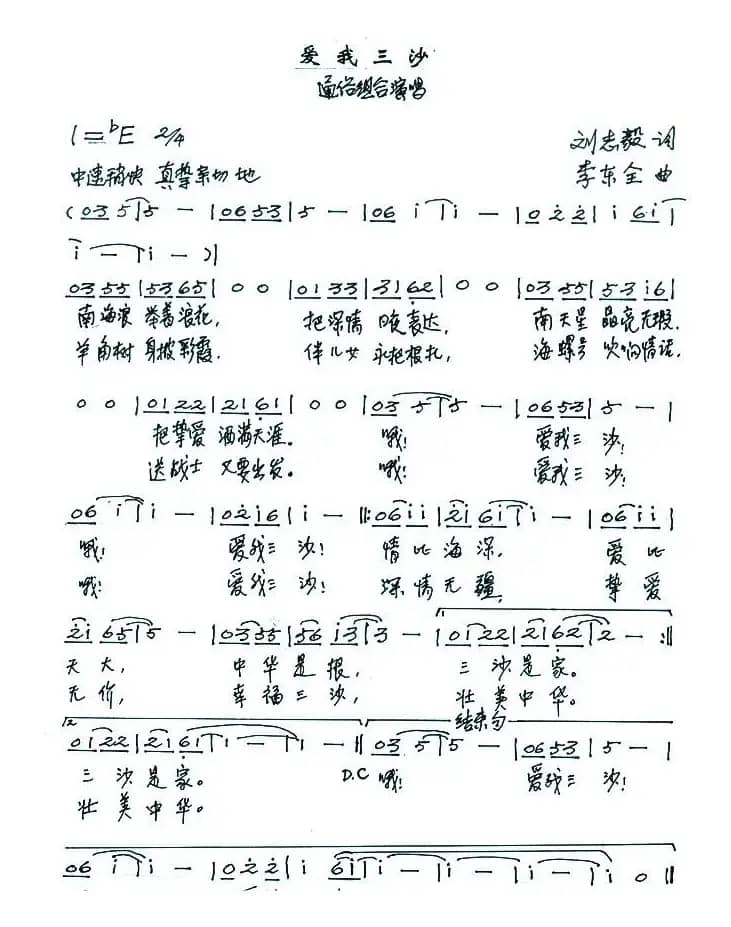 爱我三沙
通俗组合演唱
1=♭E 2/4 刘志毅 词
中速稍快 真挚亲切地 李东全 曲
(03 5 | 5 — | 06 53 | 5 — | 06 i | i — | 02 2 | i 6i |
i — | i — ) |
03 55 | 53 65 | 0 0 | 01 33 | 31 62 | 0 0 | 03 55 | 53 i6 |
南海浪 举着浪花, 把深情 表达, 南天星 晶亮无瑕.
羊角树 身披彩霞. 伴儿女 永把根扎, 海螺号 吹响情话.
0 0 | 01 22 | 21 61 | 0 0 | 03 5 | 5 — | 06 53 | 5 — |
把挚爱 洒满天涯。 哦! 爱我三 沙!
送战士 又要出发。 哦! 爱我三 沙!
06 i | i — | 02 i6 | i — ‖: 06 ii | 2i 6i | i — | 06 ii |
哦! 爱我三 沙! 情比海深, 爱比
哦! 爱我三 沙! 深情无疆, 挚爱
2i 65 | 5 — | 03 55 | 56 i3 | 3 — | 01 22 | 21 62 | 2 — :‖
天大, 中华是根, 三沙是家。
无价, 幸福三沙, 壮美中华。
2 结束句
01 22 | 21 61 | 1 — | 1 — ‖ 03 5 | 5 — | 06 53 | 5 — |
三沙是家。 D.C 哦! 爱我三 沙!
壮美中华。
06 i | i — | 02 2 | i 6i | i — | i — | i — | i 0 ‖